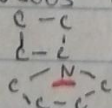 C - C
C - C
N
C C
C - C